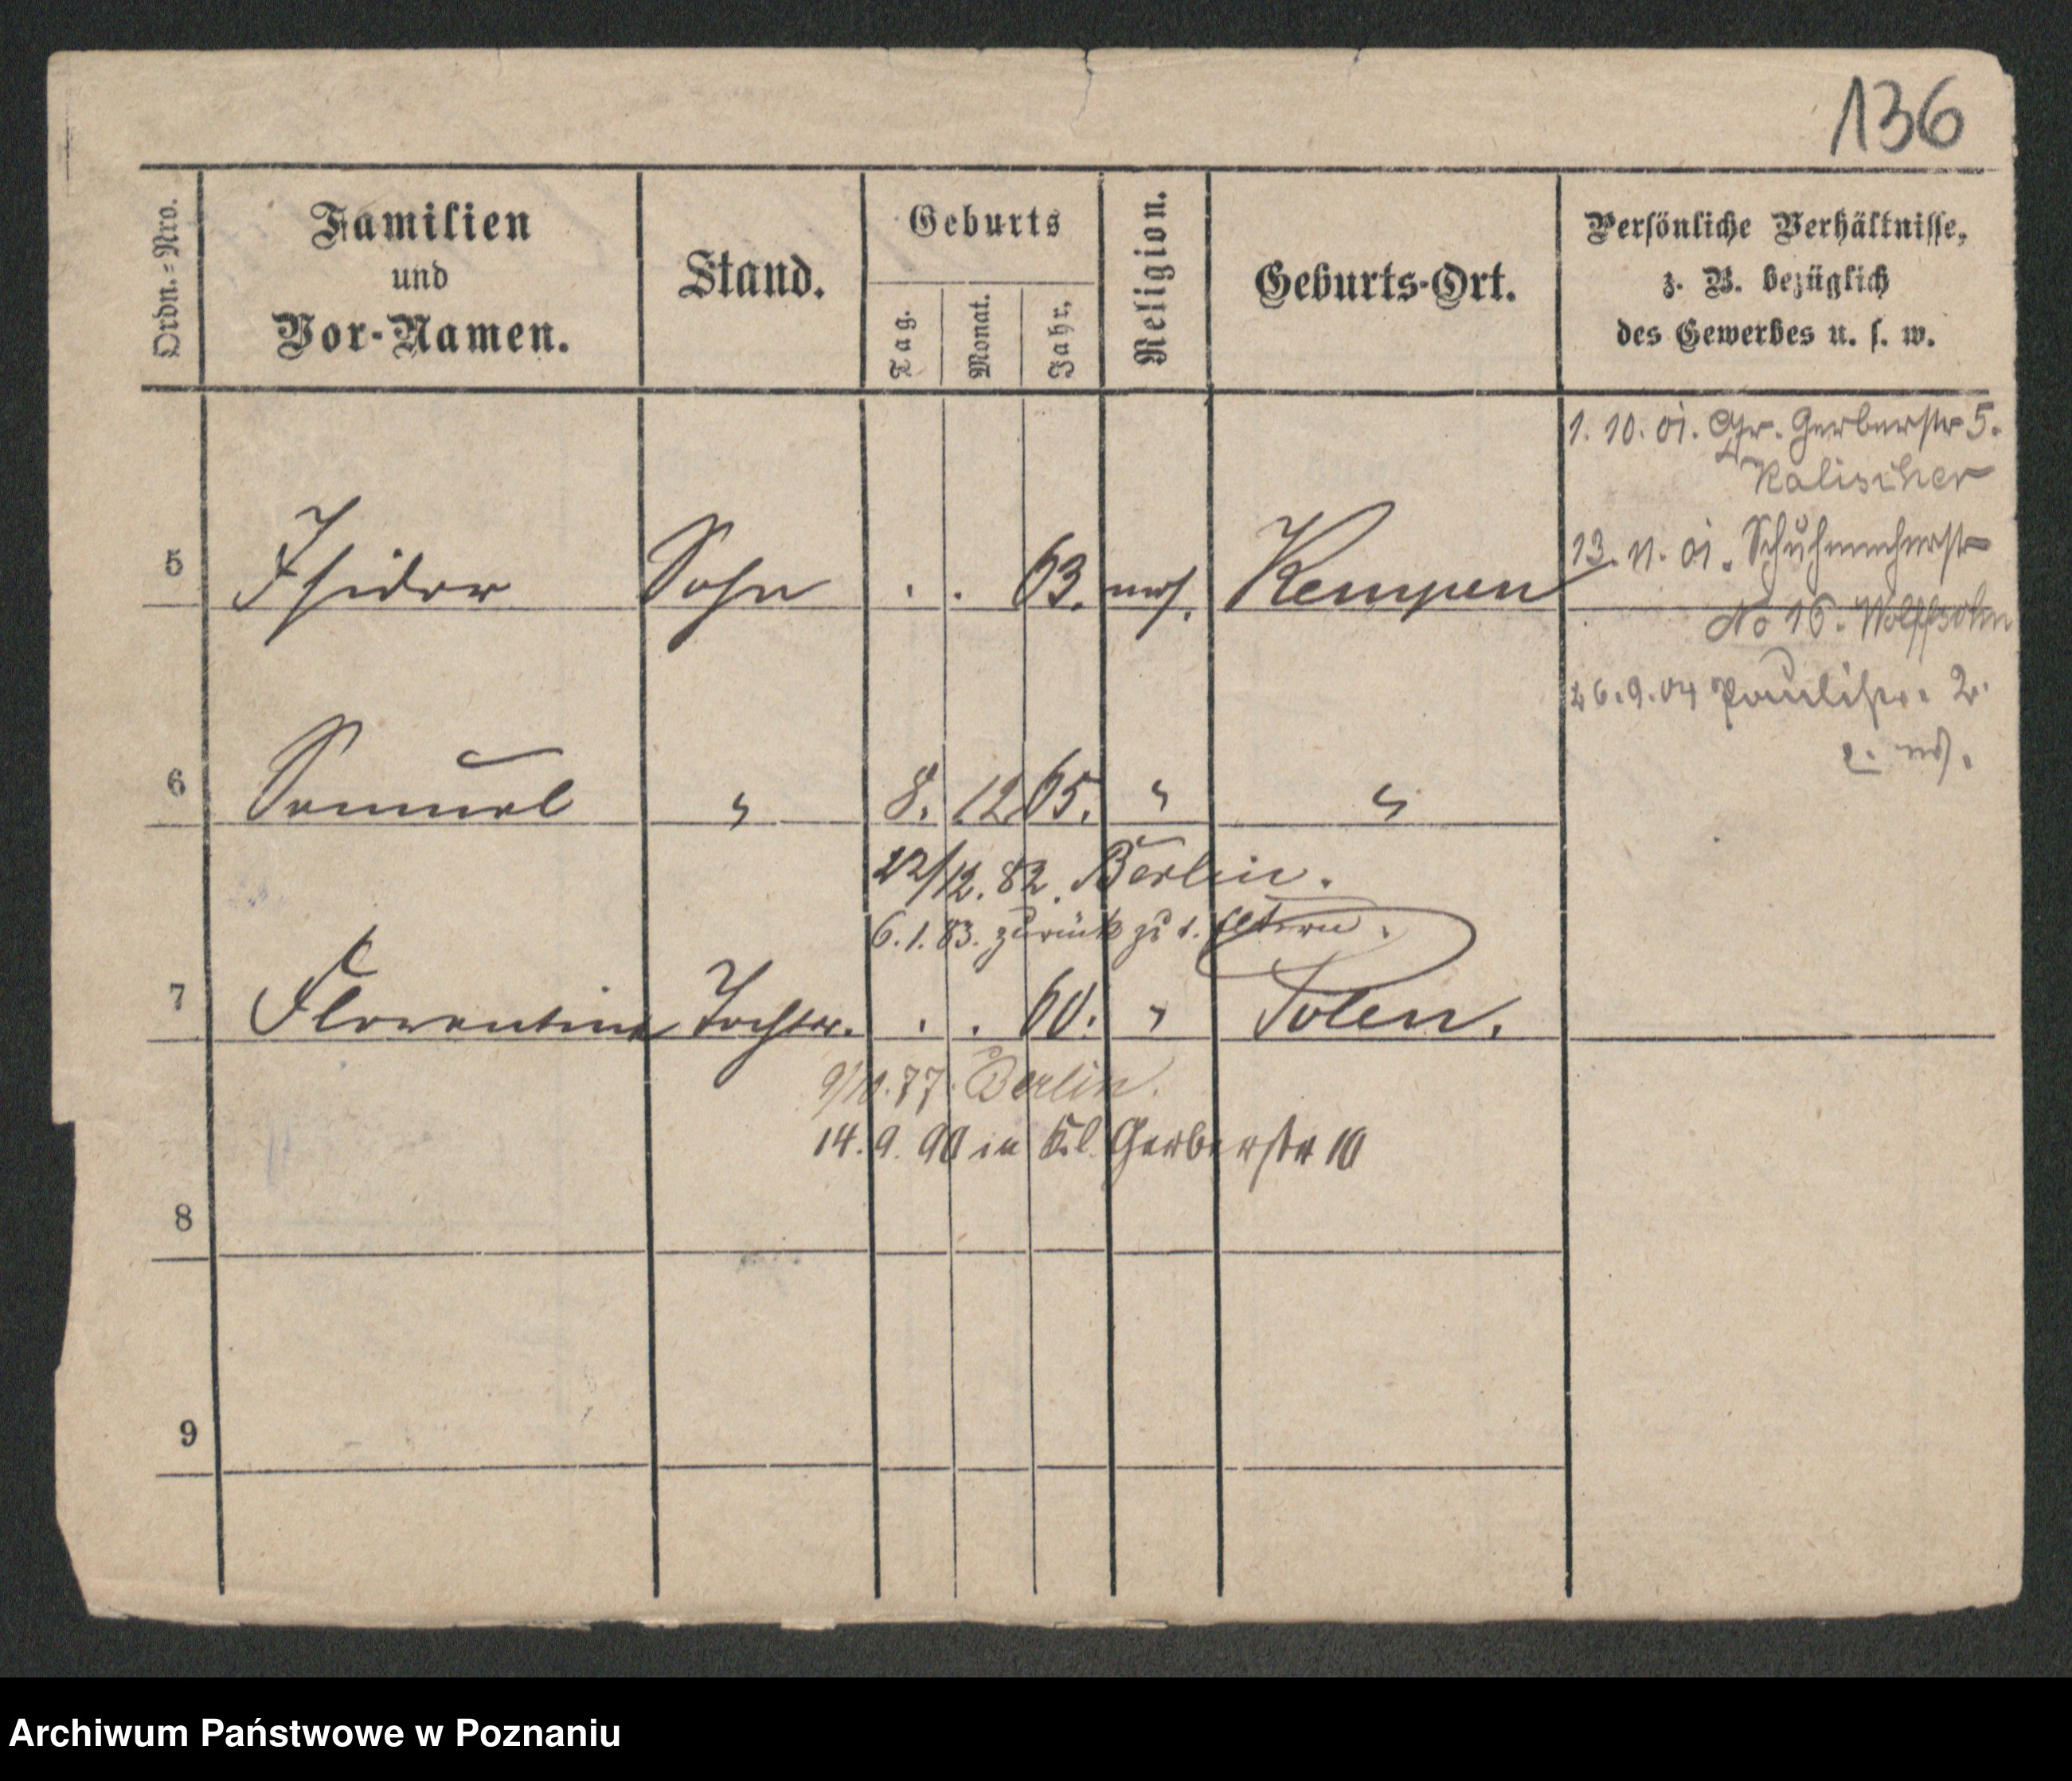 136
Ordn.=Nro.
Familien
und
Vor-Namen.
Stand.
Geburts
Tag.
Monat.
Jahr.
Religion.
Geburts-Ort.
Persönliche Verhältnisse,
z. B. bezüglich
des Gewerbes u. s. w.
1. 10. 01. Gr. Gerberstr 5.
Kalischer
5 Isidor Sohn . . 63. mos. Kempen
13. 11. 01. Schuhmacherstr
No 16. Wolffsohn
26. 9. 04 Paulistr. 2.
6 Samuel " 8. 12 65. " "
22/12. 82. Berlin.
6. 1. 83. zurück zu d. Eltern.
7 Florentine Tochter. . . 60. " Polen.
9/10. 77. Berlin.
14. 9. 90 in Kl. Gerberstr 10
8
9
Archiwum Państwowe w Poznaniu